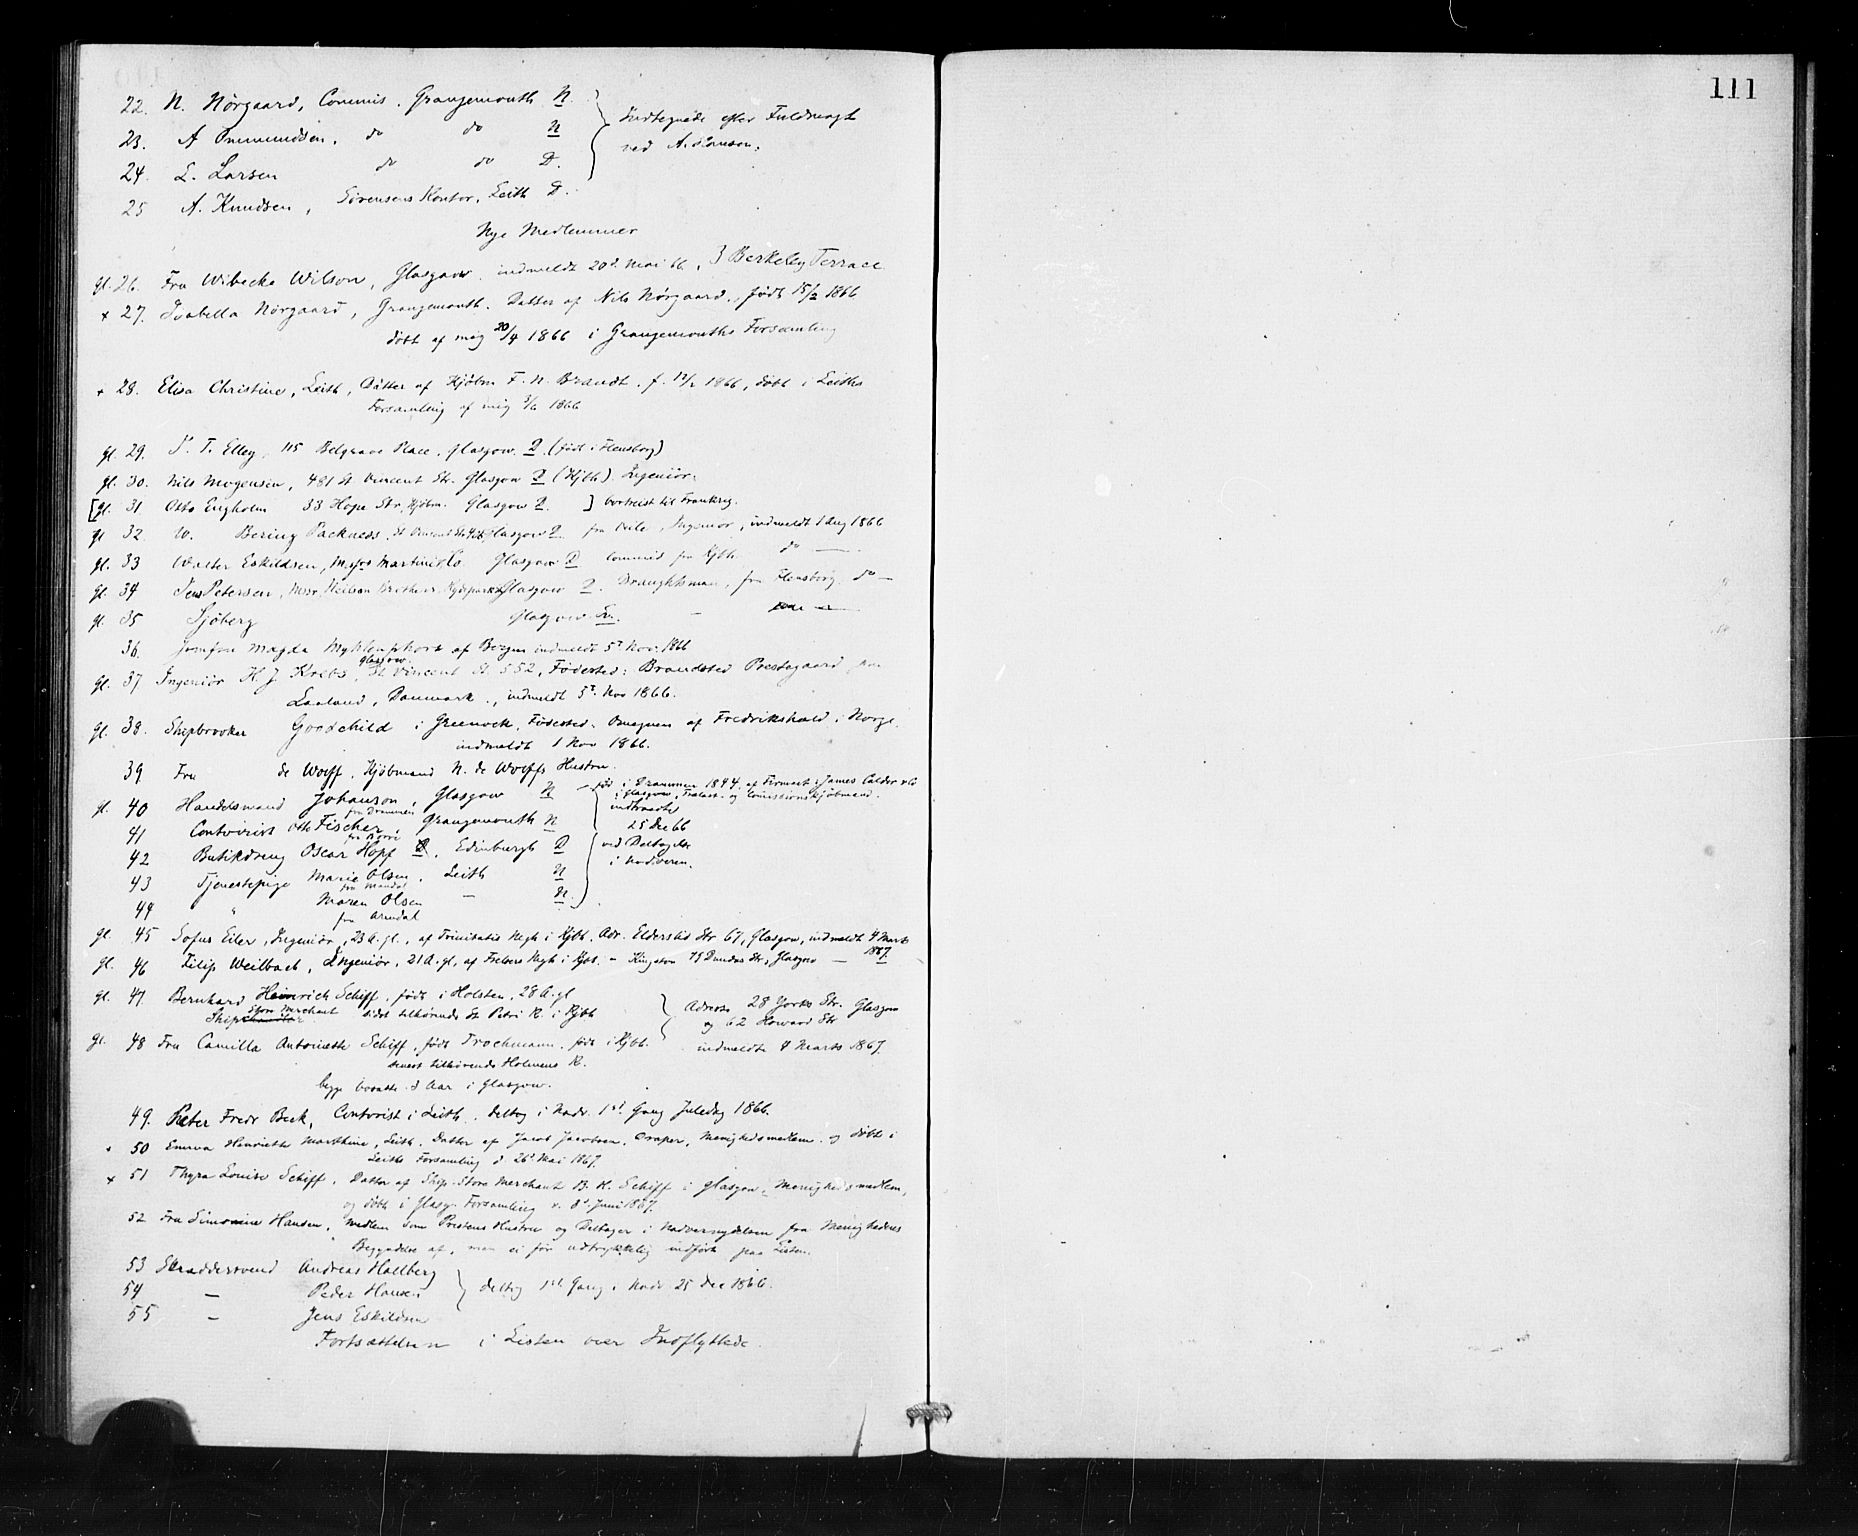 111
22. N. Nørgaard, Commis. Grangemouth N.
23. A Ommundsen, do do N
Indtegnede efter Fuldmagt
ved A. Hanson.
24. L. Larsen do do D.
25 A. Knudsen, Sørensens Kontor, Leith D.
Nye Medlemmer
gl. 26. Fru Wibecke Wilson, Glasgow. indmeldt 20d. Mai 66. 3 Berkeley Terrace
x 27. Isabella Nørgaard, Grangemouth. Datter af Nils Nørgaard, født 15/2 1866
døbt af mig 20/4 1866 i Grangemouths Forsamling
x 28. Elisa Christine, Leith, Datter af Kjøbm F. N. Brandt. f. 12/2 1866, døbt i Leiths
Forsamling af mig 3/6 1866
gl. 29. T. Elley, 115 Belgrave Place, Glasgow. D. (født i Flensborg)
gl. 30. Nils Mogensen, 481 St Vincent Str. Glasgow D (Kjbh). Ingeniør.
[gl. 31. Otto Engholm 33 Hope Str, Kjøbm. Glasgow D. ] bortreist til Frankrig.
gl 32. W. Bering Packness, St Vincent Str Glasgow D fra Veile, Ingeniør, indmeldt 1 Aug 1866
gl. 33 Walter Eskildsen, Messrs Martini & Co. Glasgow D Commis fra Kjbh. do —
gl. 34 Jens Petersen, Messr. Neilson Brothers, Hydepark Glasgow D. Draughtsman, fra Flensborg. do —
gl. 35 Sjøberg Glasgow. Sv. —
36. Jomfru Magda Myhlenphort af Bergen indmeldt 5t Nov. 1866
gl. 37 Ingeniør H. J. Krebs, Glasgow. St Vincent St. 552, Fødested: Brandsted Prestegaard paa
Laaland, Danmark., indmeldt 5t. Nov 1866.
gl. 38. Shipbrooker Goodchild i Greenock, Fødested. Omegnen af Fredrikshald i Norge.
indmeldt 1 Nov 1866.
39 Fru de Wolff, Kjøbmand N. de Wolffs Hustru.
gl. 40 Handelsmand Johanson, Glasgow N — født i Drammen 1844. af Firmaet: James Calder & Co
i Glasgow, Trælast- og Comissionskjøbmand.
fra Drammen
41 Contorist Otto Fischer Grangemouth N
indtraadte
25 Dec 66
fra Borre
42 Butikdreng Oscar Hopf D. Edinburgh D
ved Deltagelse
i Nadveren.
43 Tjenestepige Marie Olsen, Leith N
fra Mandal
44 " Maren Olsen — N.
fra Arendal
gl. 45 Sofus Eiler, Ingeniør, 23 A. gl., af Trinitatis Megh i Kjbh. Adr. Elderslie Str 67, Glasgow, indmeldt 4 Marts
1867.
gl. 46 Filip Weilbach, Ingeniør, 21 A. gl, af Frelsers Megh i Kjbh. - Kingston 75 Dundas Str, Glasgow —
gl. 47. Bernhard Heinrich Schiff, født i Holsten, 28 A. gl
Ship Store Merchant sidst tilhørende St Petri K. i Kjbh
Adresse 28 York Str. Glasgow
og 62 Howard Str
gl. 48 Fru Camilla Antoinette Schiff, født Trochmann. født i Kjbh.
indmeldte 4 Marts 1867.
senest tilhørende Holmens K.
begge bosatte 3 Aar i Glasgow.
49. Peter Fredr Beck, Contorist i Leith, deltog i Nadv. 1st Gang Juledag 1866.
x 50 Emma Henriette Marthine, Leith. Datter af Jacob Jacobsen, Draper, Menighedsmedlem. og døbt i
Leiths Forsamling d. 26d Mai 1867.
x 51 Thyra Louise Schiff, Datter af Ship-Store Merchant B. H. Schiff i Glasgow, Menighedsmedlem,
og døbt i Glasg. Forsamling d. 8d Juni 1867.
52 Fru Simonine Hansen, medlem som Prestens Hustru og Deltager i Nadvernydelsen fra Menighedens
Begyndelse af, men ei før udtrykkelig indført paa Listen.
53 Skræddersvend Andreas Hallberg
54 — Peder Hansen
deltog 1st Gang i Nadv 25 Dec 1866.
55 — Jens Eskildsen
Fortsættelsen i Listen over Indflyttede.